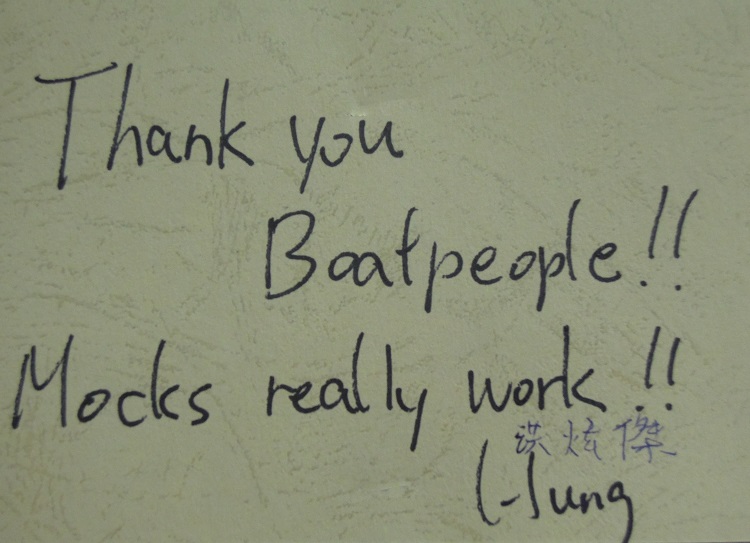 Thank you
Boatpeople!!
Mocks really work!!
洪炫傑
Hung